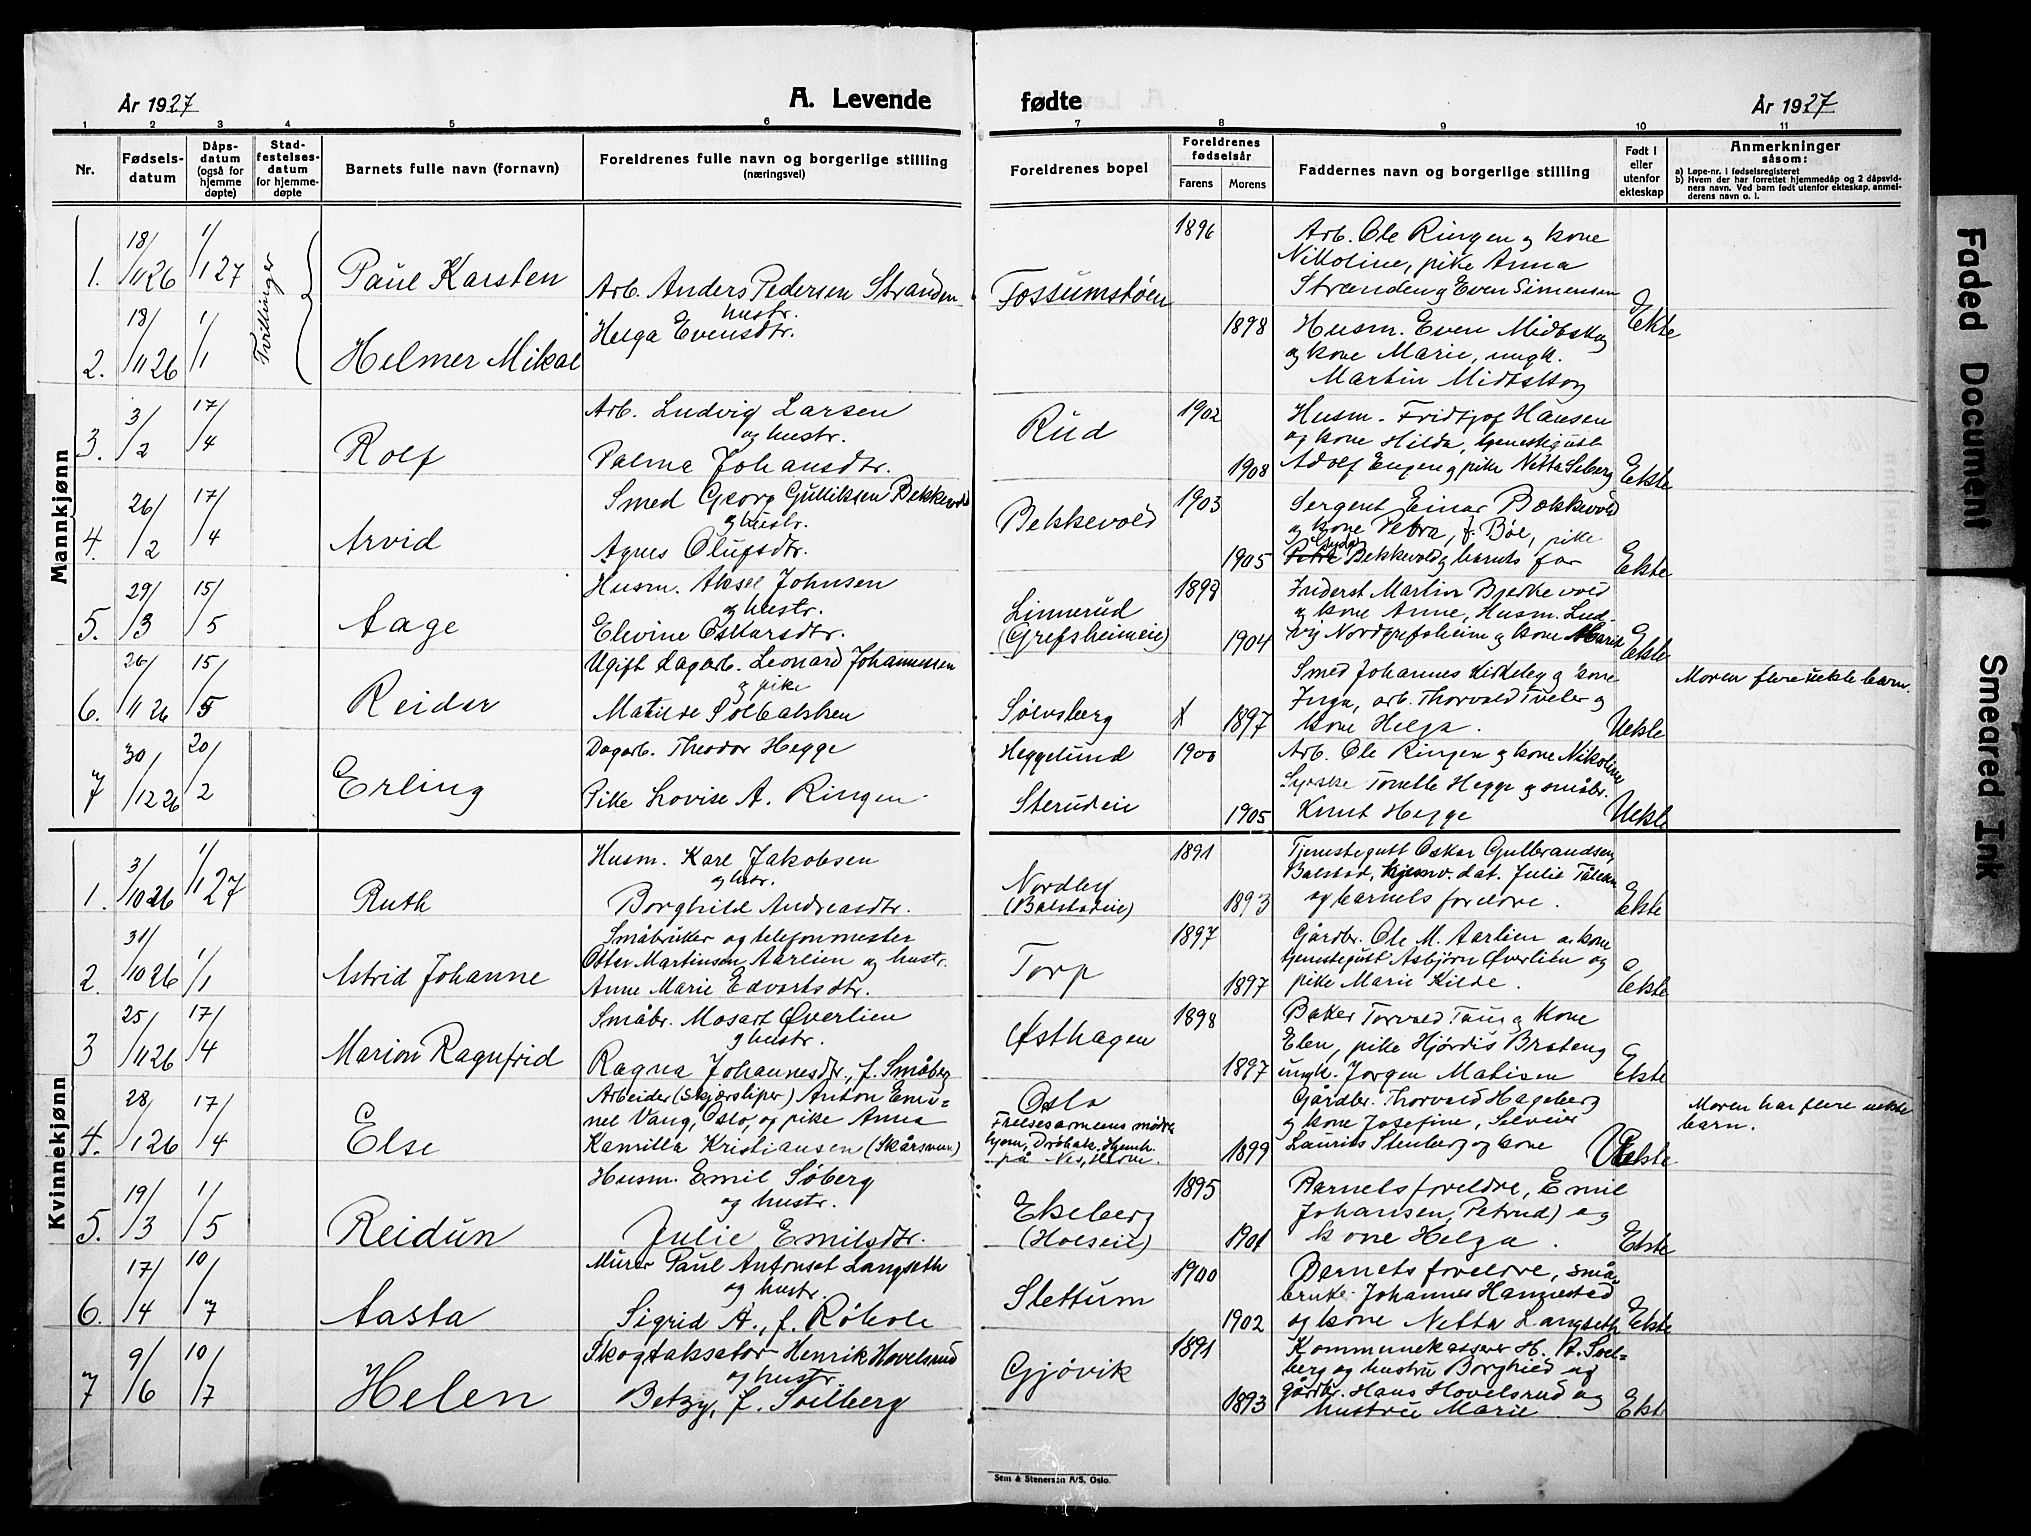 År 1927
A. Levende fødte
År 1927
1 2 3 4 5 6 7 8 9 10 11
Nr.
Fødsels-
datum
Dåps-
datum
(også for
hjemme
døpte)
Stad-
festelses-
datum
for hjemme-
døpte
Barnets fulle navn (fornavn)
Foreldrenes fulle navn og borgerlige stilling
(næringsvei)
Foreldrenes bopel
Foreldrenes
fødselsår
Farens Morens
Faddernes navn og borgerlige stilling
Født i
eller
utenfor
ekteskap
Anmerkninger
såsom:
a) Løpe-nr. i fødselsregisteret
b) Hvem der har forrettet hjemmedåp og 2 dåpsvid-
ners navn. Ved barn født utenfor ekteskap, anmel-
derens navn o. l.
Mannkjønn
1. 18/11 26 1/1 27
Tvillinger
Paul Karsten
Arb. Anders Pedersen Stranden
hustr.
Helga Evensdtr.
Fossumstøen
1896
Arb. Ole Ringen og kone
Nikoline, pike Anna
Stranden og Even Simensen
2. 18/11 26 1/1
Helmer Mikal
1898
Husm. Even Midtskog
og kone Marie, ungk.
Martin Midtskog
Ekte
3. 3/2 17/4
Rolf
Arb. Ludvig Larsen
og hustr.
Palma Johansdtr.
Rud
1902
1908
Husm. Fridtjof Hansen
og kone Hilda, tjenestegutt
Adolf Engen og pike Netta Seberg
Ekte
4. 26/2 17/4
Arvid
Smed Georg Gulliksen Bekkevold
og hustr.
Agnes Olufsdtr.
Bekkevold
1903
1905
Sergent Einar Bekkevold
og kone Petra, f. Bøe, pike
Bekkevold og barnets far
Ekte
5. 29/3 15/5
Aage
Husm. Aksel Johnsen
og hustr.
Elevine Oskarsdtr.
Linnerud
(Grefsheimeie)
1898
1904
Inderst Martin Bjerkevold
og kone Anne, Husm. Lud-
vig Nordgrefsheim og kone Marie
Ekte
6. 26/11 26 15/5
Reidar
Ugift dagarb. Leonard Johannessen
og pike
Matilde Solbakken
Sølvsberg
X
1897
Smed Johannes Kirkeby og kone
Inga, arb. Thorvald Tveter og
kone Helga.
Uekte
Moren flere uekte barn.
7 30/12 26 20/2
Erling
Dagarb. Theodor Hegge
Pike Lovise A. Ringen
Heggelund
Sterudeie
1900
1905
Arb. Ole Ringen og kone Nikoline
Tonette Hegge og småbr.
Knut Hegge
Uekte
Kvinnekjønn
1. 3/10 26 1/1 27
Ruth
Husm. Karl Jakobsen
og hustr.
Borghild Andreasdtr.
Nordby
(Balstadeie)
1891
1893
Tjenestegutt Oskar Gulbrandsen
Balstad, hjemv. dat. Julie
og barnets foreldre.
Ekte
2. 31/10 26 1/1
Astrid Johanne
Småbruker og telefonmester
Otter Martinsen Aarlien og hustr.
Anne Marie Edvartsdtr.
Torp
1897
1897
Gårdbr. Ole M. Aarlien og kone
tjenestegutt Asbjørn Øverlien og
pike Marie Kilde.
Ekte
3 25/11 26 17/4
Marion Ragnfrid
Småbr. Mosart Øverlien
og hustr.
Ragna Johannesdtr., f. Småberg
Østhagen
1898
1897
Baker Torvald Taug og kone
Elen, pike Hjørdis Brateng
ungk. Jørgen Matisen
Ekte
4. 28/1 26 17/4
Else
Arbeider (skjærsliper) Anton Emi-
nel Vang, Oslo, og pike Anna
Kamilla Kristiansen (Skårsmoen)
Oslo
Frelsesarmeens mødre
hjem, Drøbak. Hjemh.
på Nes, Hedm.
1899
Gårdbr. Thorvald Hageberg
og kone Josefine, Selveier
Laurits Stenberg og kone
Uekte
Moren har flere uekte
barn.
5. 19/3 1/5
Reidun
Husm. Emil Søberg
og hustr.
Julie Emilsdtr.
Ekeberg
(Hoeseie)
1895
1901
Barnets foreldre, Emil
Johansen, Petrud) og
kone Helga.
Ekte
6. 17/4 10/7
Aasta
Murer Paul Antonset Langseth
og hustr.
Sigrid A., f. Røhole
Slettum
1900
1902
Barnets foreldre, små-
bruke. Johannes Hannestad
og kone Netta Langseth
Ekte
7 9/6 10/7
Helen
Skogtaksator Henrik Hovelsrud
og hustr.
Betzy, f. Solberg
Gjøvik
1891
1893
Kommunekasserer H. A. Sol-
berg og hustru Borghild og
gårdbr. Hans Hovelsrud og
hustru Marie
Ekte
Sem & Stenersen A/S, Oslo.
Faded Document
Smeared Ink